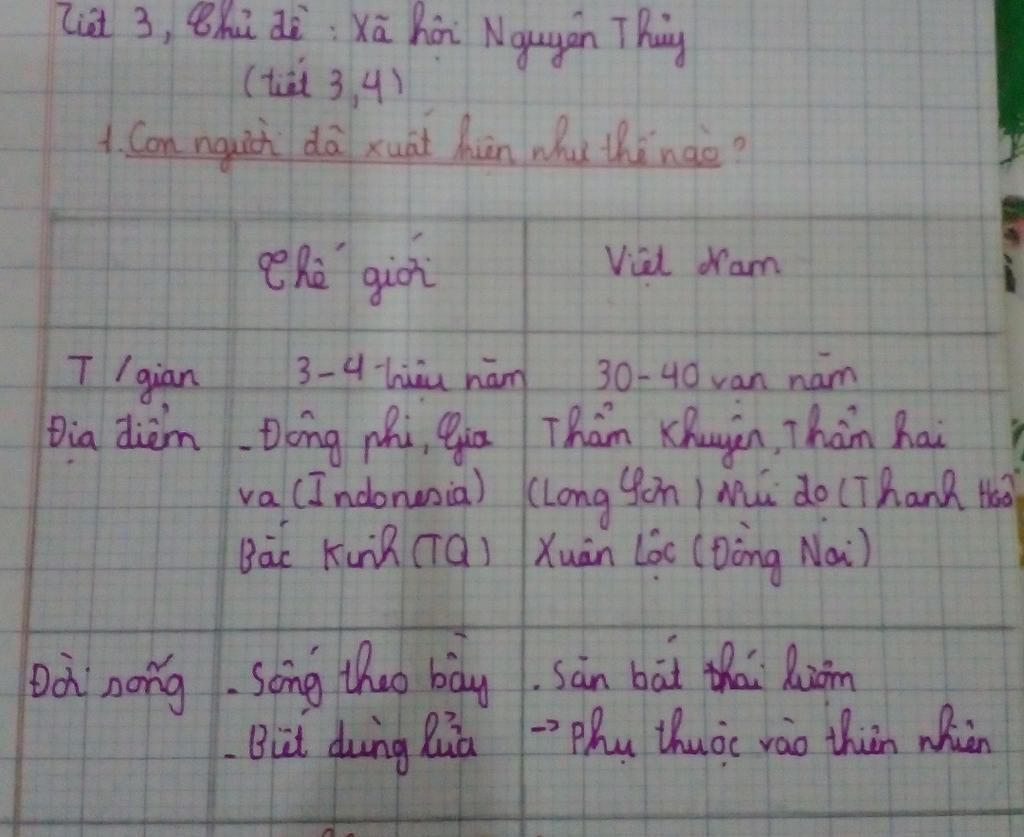 Tiết 3, Chủ đề: Xã hội Nguyên Thủy
(tiết 3,4)
1. Con người đã xuất hiện như thế nào?
Thế giới
Việt Nam
T/gian
3-4 triệu năm
30-40 vạn năm
Địa điểm
- Đông phi, Gia
Thẩm Khuyên, Thẩm hai
va (Indonesia)
(Long Sơn) Núi đo (Thanh Hoá)
Bắc Kinh (TQ)
Xuân Lộc (Đồng Nai)
Đời sống
- Sống theo bầy
. Săn bắt thái lượm
- Biết dùng lửa
-> Phụ thuộc vào thiên nhiên